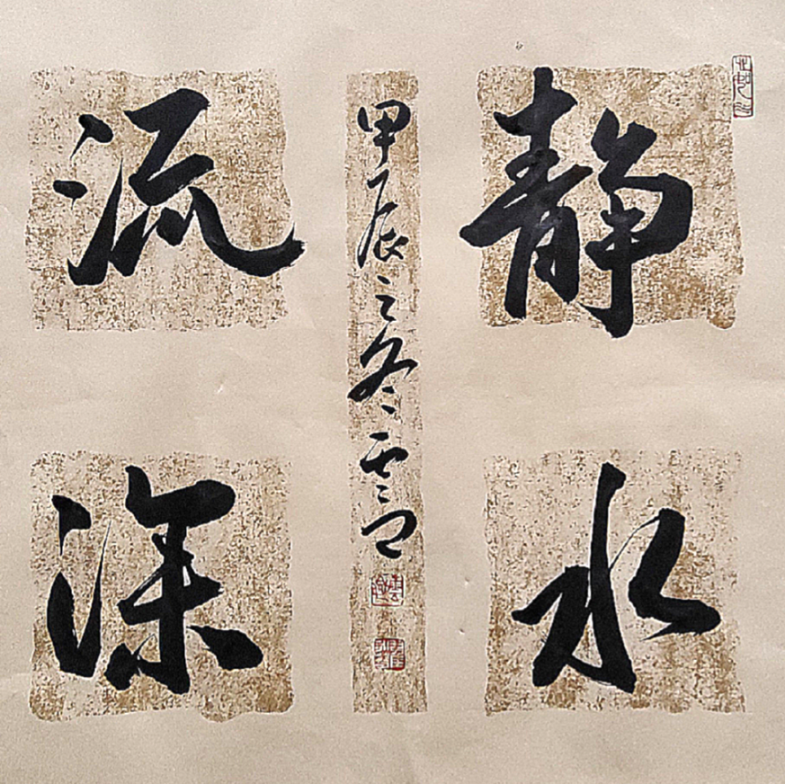 静水
流深
甲辰之冬雪